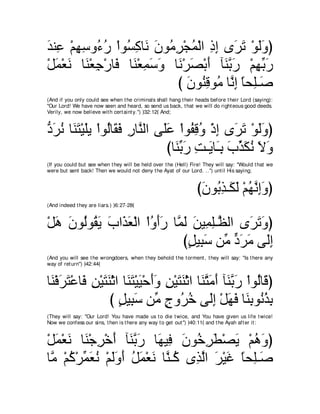 وَلَوْ تَرَىٰ إِذِ الْمُجْرِمُونَ نَاكِسُوا رُءُوسِهِمْ عِندَ
رَبِّهِمْ رَبَّنَآ أَبْصَرْنَا وَسَمِعْنَا فَارْجِعْنَا نَعْمَلْ
صَـلِحاً إِنَّا مُوقِنُونَ )
(And if you only could see when the criminals shall hang their heads before their Lord (saying): "Our Lord! We have now seen and heard, so send us back, that we will do righteous good deeds. Verily, we now believe with certainty.'') )32:12( And;
(وَلَوْ تَرَى إِذْ وُقِفُوا عَلَى النَّارِ فَقَالُوا يلَيْتَنَا نُرَدُّ
وَلاَ نُكَذِّبَ بِـَايَـتِ رَبِّنَا)
(If you could but see when they will be held over the (Hell) Fire! They will say: "Would that we were but sent back! Then we would not deny the Ayat of our Lord. ..'') until His saying,
(وَإِنَّهُمْ لَكَـذِبُونَ)
(And indeed they are liars.) )6:27-28(
(وَتَرَى الظَّـلِمِينَ لَمَّا رَأَوُاْ الْعَذَابَ يَقُولُونَ هَلْ
إِلَى مَرَدٍّ مِّن سَبِيلٍ)
(And you will see the wrongdoers, when they behold the torment, they will say: "Is there any way of return'') )42:44(
(قَالُوا رَبَّنَآ أَمَتَّنَا اثْنَتَيْنِ وَأَحْيَيْتَنَا اثْنَتَيْنِ فَاعْتَرَفْنَا
بِذُنُوبِنَا فَهَلْ إِلَى خُرُوجٍ مِّن سَبِيلٍ )
(They will say: "Our Lord! You have made us to die twice, and You have given us life twice! Now we confess our sins, then is there any way to get out'') )40:11( and the Ayah after it:
(وَهُمْ يَصْطَرِخُونَ فِيهَا رَبَّنَآ أَخْرِجْنَا نَعْمَلْ
صَـلِحاً غَيْرَ الَّذِي كُـنَّا نَعْمَلُ أَوَلَمْ نُعَمِّرْكُمْ مَّا